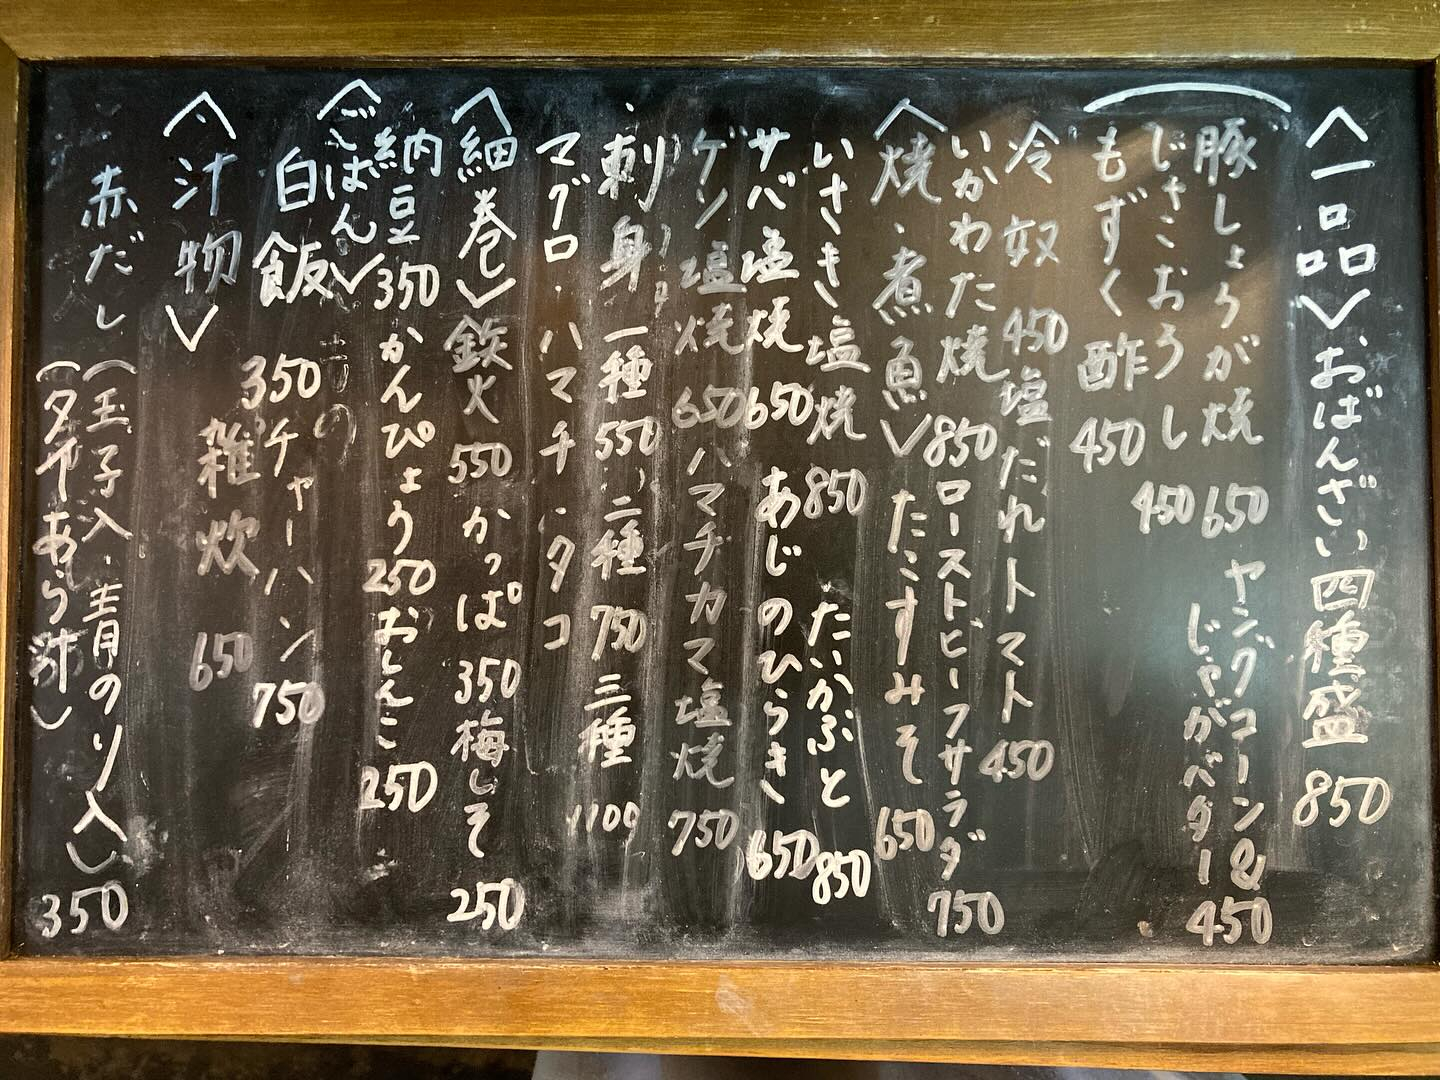 〈一品〉おばんざい四種盛 850
豚しょうが焼 650 ヤングコーン&
じゃがバター 450
じゃこおろし 450
もずく酢 450
冷奴 450 塩だれトマト 450
いかわた焼 850 ローストビーフサラダ 750
〈焼・煮魚〉たこすみそ 650
いさき塩焼 850 たいかぶと 850
サバ塩焼 650 あじのひらき 650
ゲソ塩焼 650 ハマチカマ塩焼 750
刺身 一種 550 二種 750 三種 1100
マグロ・ハマチ・タコ
〈細巻〉鉄火 550 かっぱ 350 梅しそ 250
納豆 350 かんぴょう 250 おしんこ 250
〈ごはん〉
白飯 350 チャーハン 750
雑炊 650
〈汁物〉
赤だし (玉子入・青のり入)
(タイあら汁) 350